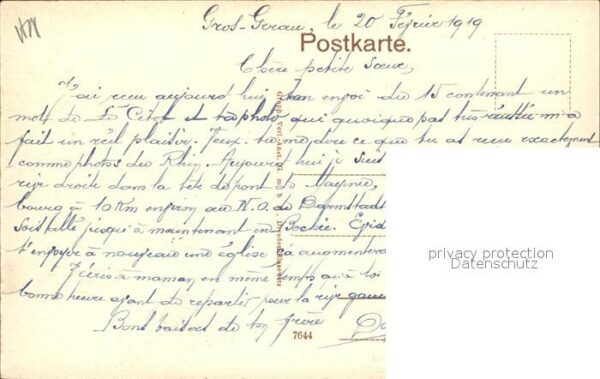 Gros-Gerau, le 20 Février 1919
Postkarte.
Chère petite Soeur,
J'ai reçu aujourd'hui ton envoi du 15 contenant un
mot de et ta photo qui quoique pas très m'a
fait un réel plaisir. Veux-tu me dire ce que tu as reçu exactement
comme photos du Rhin. Aujourd'hui je suis
rive droite dans la tête de pont de Mayence,
bourg à 10 Km environ au N.O. de Darmstadt
jusqu'à maintenant en Bochie.
t'envoyer à nouveau une église augmentera
J'écris à maman en même temps qu'à toi
bonne heure avant de repartir pour la rive gau
Bons baisers de ton frère
7644
privacy protection
Datenschutz